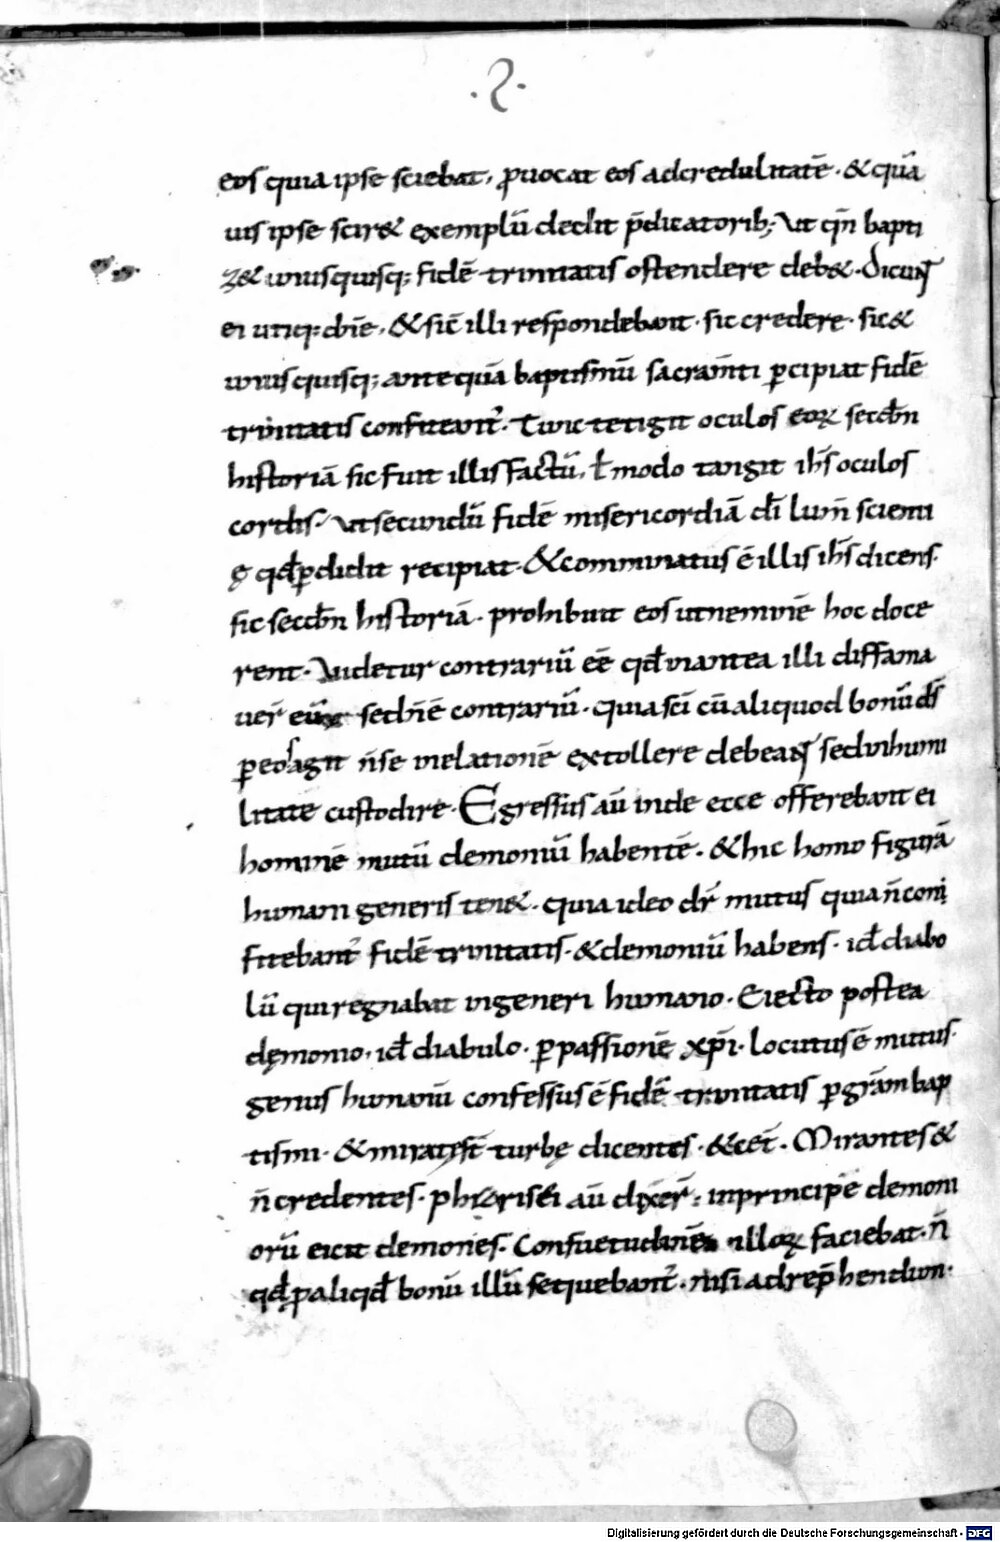 ·S·
eos quia ipse sciebat, ꝓuocat eos adcredulitatē· & quā
uis ipse scir& exemplū dedit p̄dicatorib; Ut qn̄ bapti
z& unusquisq; fidē trinitatis ostendere deb&· Dicunt
ei utiq; dn̄e, & sic̄ illi respondebant· sic credere· sic &
unusquisq; ante quā baptismū sacram̄ti ꝑcipiat fidē
trinitatis confiteat᷒· Tunc tetigit oculos eoꝝ secđn
historiā sic fuit illis factū, ł modo tangit ih̄s oculos
cordis· ut secundū fidē misericordiā dī lum̄ scienti
ę qđ ꝑdidit recipiat· & comminatus ē illis ih̄s dicens·
sic secđn historiā· prohibuit eos ut neminē hoc doce
rent· Uidetur contrariū eē qđ in antea illi diffama
uer̄ eū sed n̄ē contrariū· quia sc̄i cū aliquod bonū ds̄
ꝑ eos agit n̄ se in elationē extollere debeant sed in humi
litate custodire· Egressus aū inde ecce offerebant ei
hominē mutū demoniū habentē· & hic homo figurā
humani generis ten&· quia ideo dr̄ mutus quia n̄ con
fitebant᷒ fidē trinitatis· & demoniū habens· id diabo
lū qui regnabat in generi humano· Eiecto postea
dęmonio, id diabulo· ꝑ passionē xp̄i· locutus ē mutus·
genus humanū confessus ē fidē trinitatis ꝑ grām bap
tismi· & miratę st̄ turbę dicentes· & cet̄· Mirantes &
n̄ credentes· pharisei aū dixer̄: in principe demoni
orū eicit demones· Consuetudinē illoꝝ faciebat· n̄
qđ ꝑ aliqđ bonū illū sequebant᷒· nisi ad rep̄hendum·
Digitalisierung gefördert durch die Deutsche Forschungsgemeinschaft - DFG